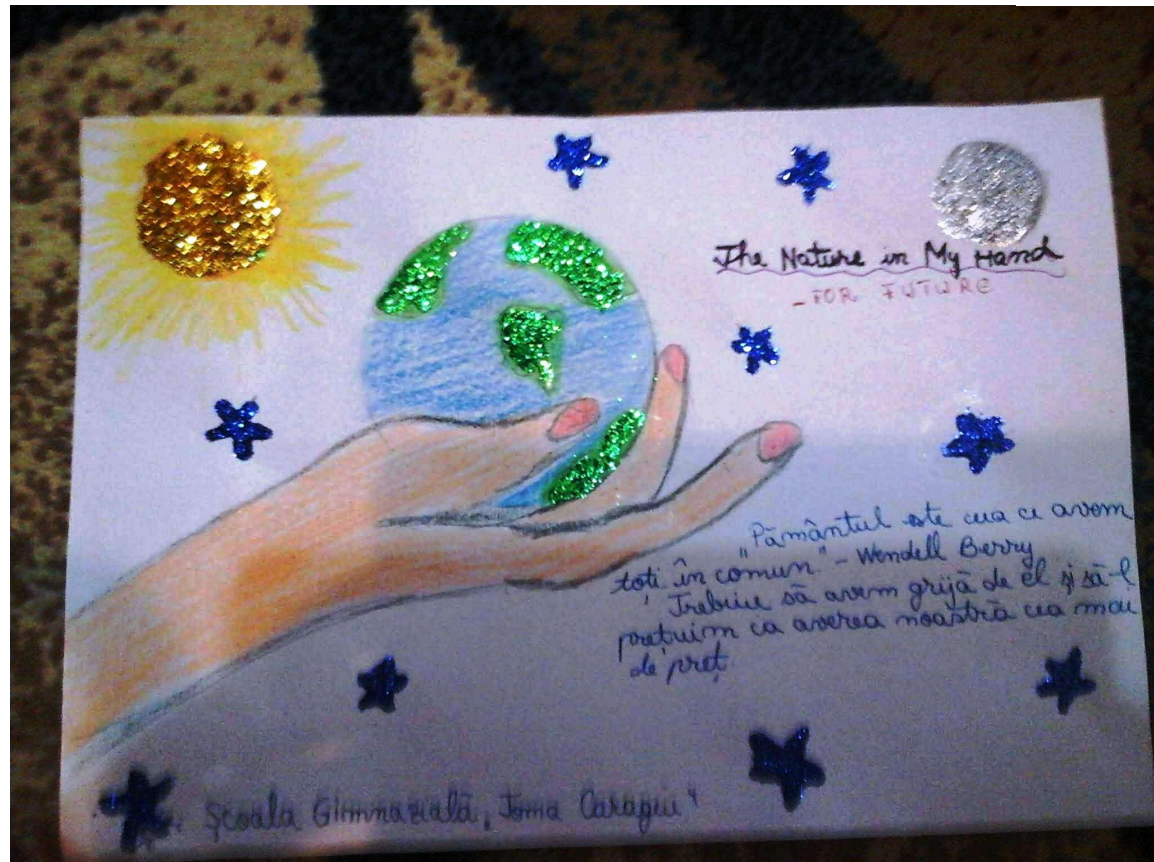 The Nature in My Hand
- FOR FUTURE
"Pământul este ceea ce avem
toți în comun" - Wendell Berry
Trebuie să avem grijă de el și să-l
prețuim ca averea noastră cea mai
de preț.
Școala Gimnazială „Toma Caragiu"